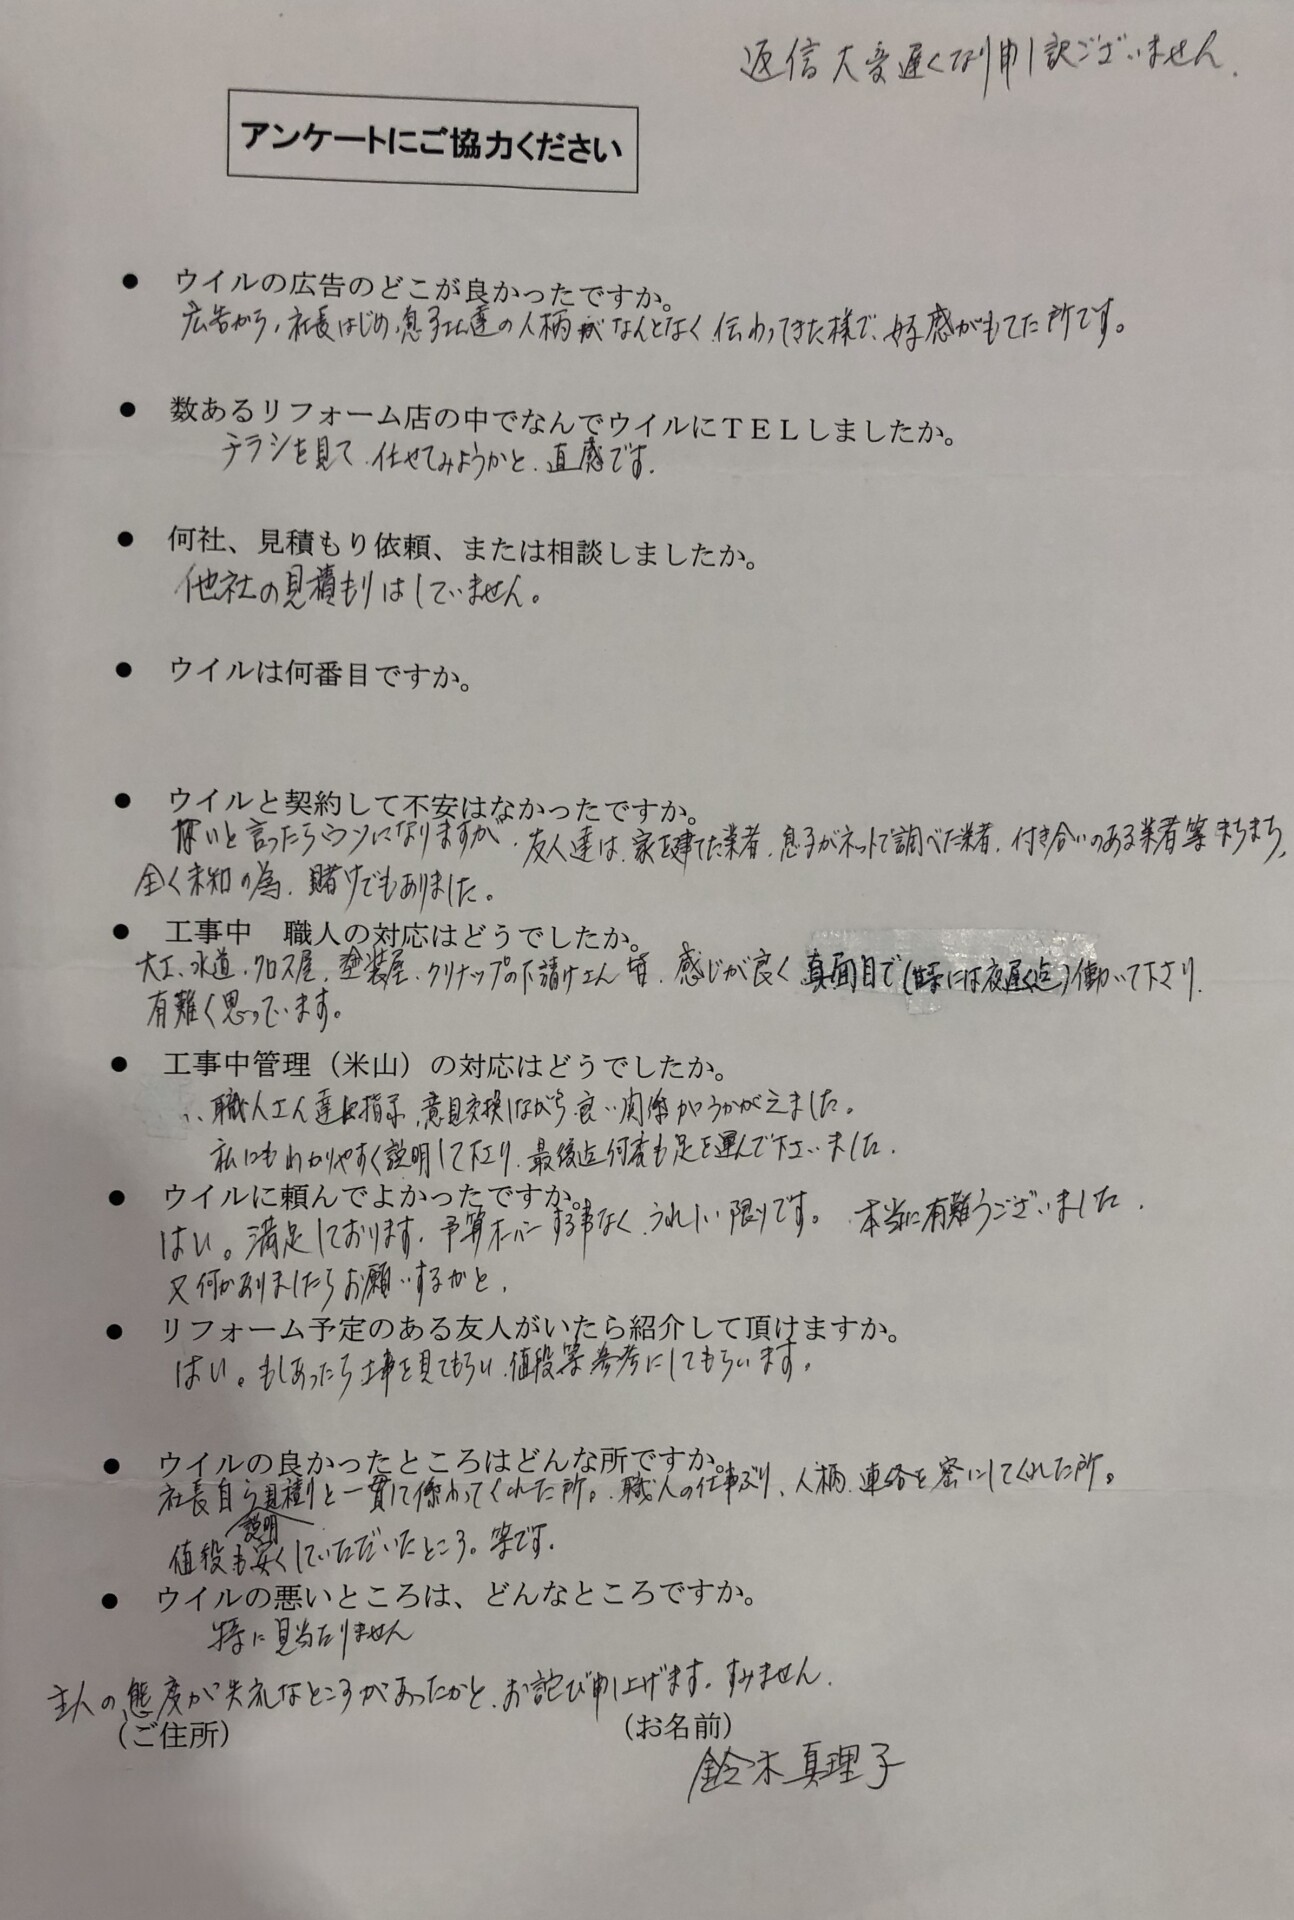 返信大変遅くなり申し訳ございません.
アンケートにご協力ください
● ウイルの広告のどこが良かったですか。
広告から、社長はじめ、息子さん達の人柄がなんとなく伝わってきた様で、好感がもてた所です。
● 数あるリフォーム店の中でなんでウイルにTELしましたか。
チラシを見て、任せてみようかと、直感です.
● 何社、見積もり依頼、または相談しましたか。
他社の見積もりはしていません。
● ウイルは何番目ですか。
● ウイルと契約して不安はなかったですか。
無いと言ったらウソになりますが、友人達は、家を建てた業者、息子がネットで調べた業者、付き合いのある業者等まちまち,
全く未知の為、賭けでもありました。
● 工事中 職人の対応はどうでしたか。
大工、水道、クロス屋、塗装屋、クリナップの下請けさん皆、感じが良く真面目で(時には夜遅く迄)働いて下さり、
有難く思っています。
● 工事中管理（米山）の対応はどうでしたか。
職人さん達に指示、意見交換しながら良い関係がうかがえました。
私にもわかりやすく説明して下さり、最後迄何度も足を運んで下さいました.
● ウイルに頼んでよかったですか。
はい。満足しております、予算オーバーする事なく、うれしい限りです。本当に有難うございました.
又何かありましたらお願いするかと.
● リフォーム予定のある友人がいたら紹介して頂けますか。
はい。もしあったら工事を見てもらい、値段等参考にしてもらいます。
● ウイルの良かったところはどんな所ですか。
社長自ら見積りと一貫して係わってくれた所。職人の仕事ぶり、人柄、連絡を密にしてくれた所。
説明
値段も安くしていただいたところ。等です.
● ウイルの悪いところは、どんなところですか。
特に見当たりません
主人の態度が失礼なところがあったかと、お詫び申し上げます。すみません.
（ご住所） （お名前）
鈴木真理子